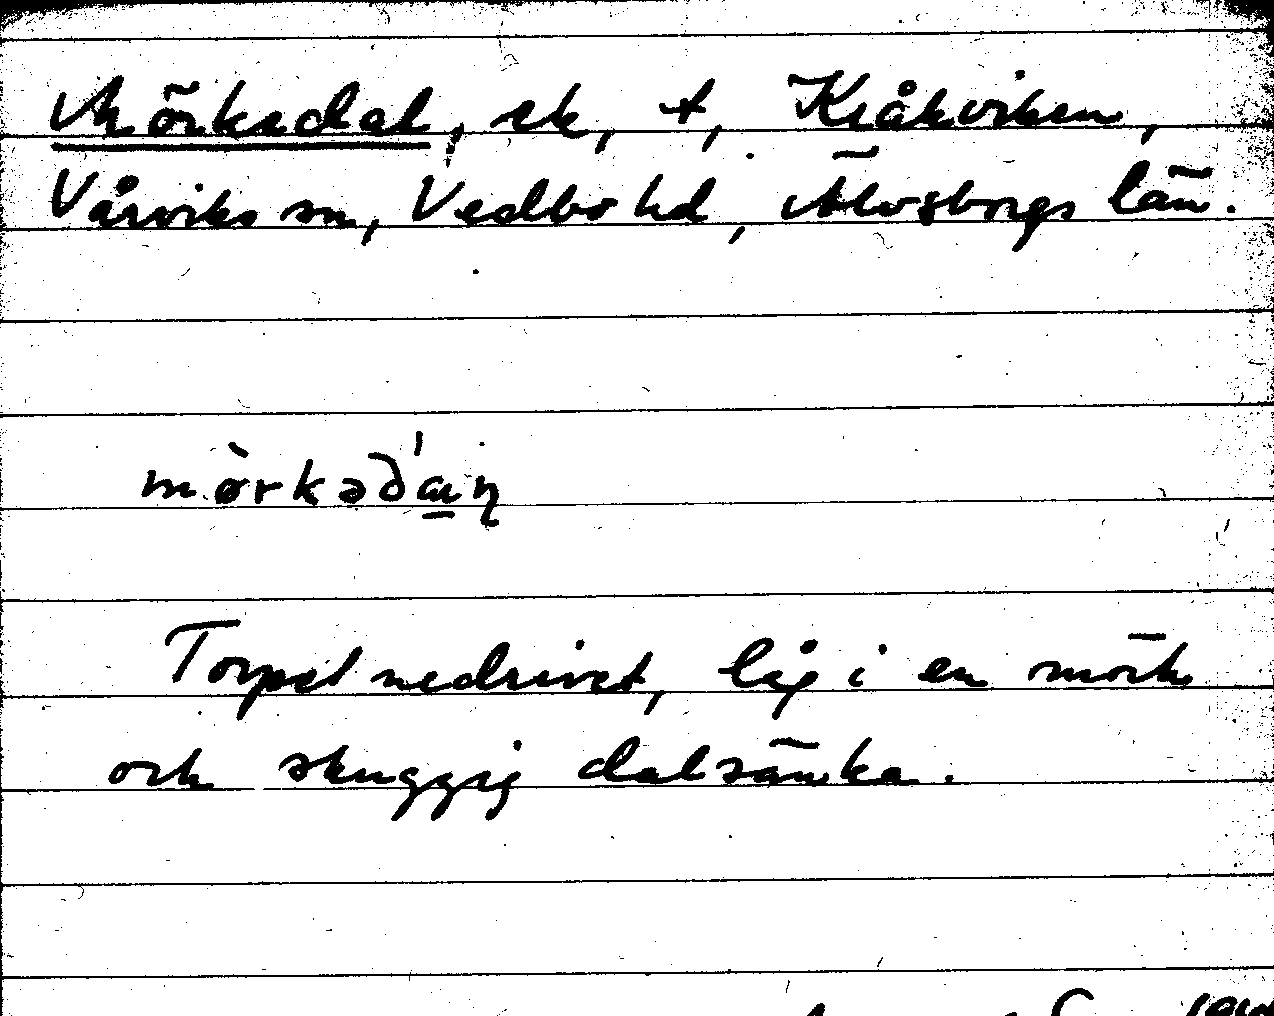 Mörkedal, sk, +, Kråkviken,
Vårviks sn, Vedbo hd, Älvsborgs län.
mø̀rkəda̍ɳ
Torpet nedrivet, låg i en mörk
och skuggig dalsänka.